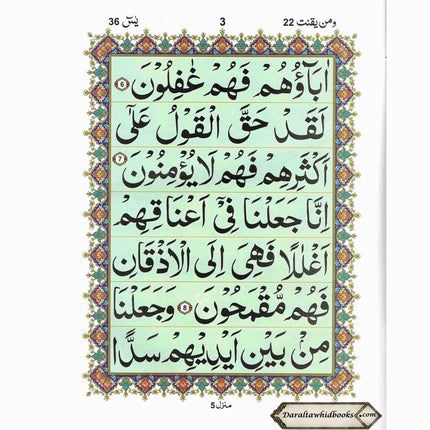 ومن يقنت 22 3 يٰسٓ 36
اٰبَآؤُهُمْ فَهُمْ غٰفِلُوْنَ ﴿6﴾
لَقَدْ حَقَّ الْقَوْلُ عَلٰٓى
اَكْثَرِهِمْ فَهُمْ لَا يُؤْمِنُوْنَ ﴿7﴾
اِنَّا جَعَلْنَا فِيْٓ اَعْنَاقِهِمْ
اَغْلٰلًا فَهِيَ اِلَى الْاَذْقَانِ
فَهُمْ مُّقْمَحُوْنَ ﴿8﴾ وَجَعَلْنَا
مِنْۢ بَيْنِ اَيْدِيْهِمْ سَدًّا
منزل 5
Daraltawhidbooks.com